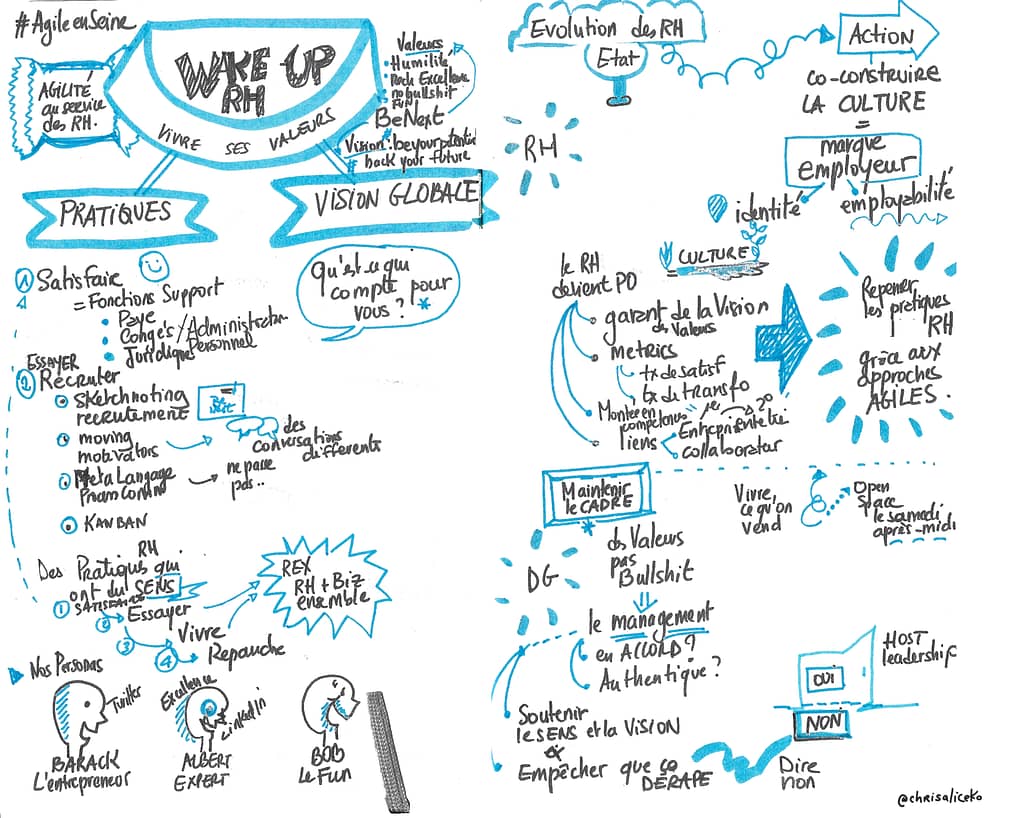 #AgileenSeine
WAKE UP
RH
VIVRE SES VALEURS
AGILITÉ
au service
des RH.
Valeurs
Humilité
Rock Excellence
no bullshit
FUN
BeNext
Vision: be your potential
hack your future
PRATIQUES
VISION GLOBALE
1 Satisfaire
= Fonctions Support
Paye
Congés / Administration
Personnel
Juridiques
Qu'est ce qui
compte pour
vous ? *
ESSAYER
2 Récruter
Sketchnoting
recrutement
moving
motivators
des
conversations
différents
Meta Langage
ne passe
pas..
KANBAN
RH
Des Pratiques qui
ont du SENS
1 SATISFAIRE
2 Essayer
3 Vivre
4 Repauche
REX
RH + Biz
ensemble
Nos Personas
Twitter
BARACK
L'entrepreneur
Excellence
LinkedIn
ALBERT
EXPERT
BOB
le Fun
Evolution des RH
Etat
Action
co-construire
LA CULTURE
=
marque
employeur
identité
employabilité
RH
CULTURE
le RH
devient PO
garant de la Vision
des Valeurs
METRICS
tx de satisf
tx de transfo
Montée en
compétences
liens
Entreprise
collaborateur
Repenser
les pratiques
RH
grâce aux
approches
AGILES.
Maintenir
le CADRE
*
Vivre,
ce qu'on
vend
Open
Space
le samedi
après-midi
DG
des Valeurs
pas
Bullshit
le management
en ACCORD ?
Authentique ?
Soutenir
le SENS et la VISION
Empêcher que ça
DÉRAPE
HOST
leadership
OUI
NON
Dire
non
@chrisaliceko